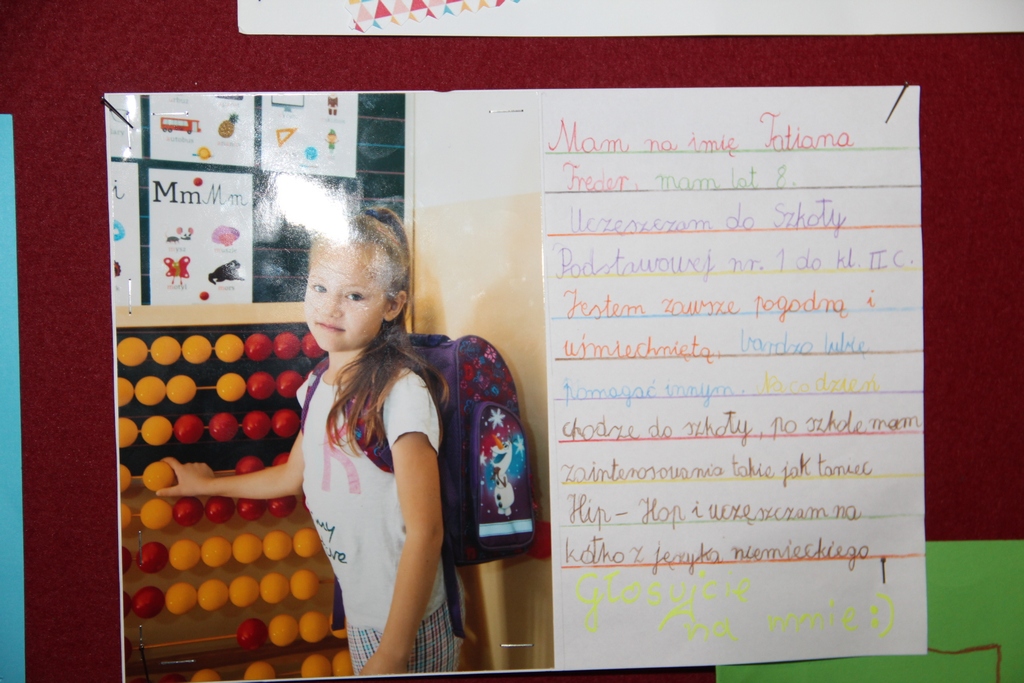 Mm Mm
Mam na imię Tatiana
Freder, mam lat 8.
Uczęszczam do Szkoły
Podstawowej nr. 1 do kl. II c.
Jestem zawsze pogodną i
uśmiechniętą, bardzo lubię
pomagać innym. Na co dzień
chodzę do szkoły, po szkole mam
zainterosowania takie jak taniec
Hip - Hop i uczęszczam na
kółko z języka niemieckiego
Głosujcie
na mnie :)